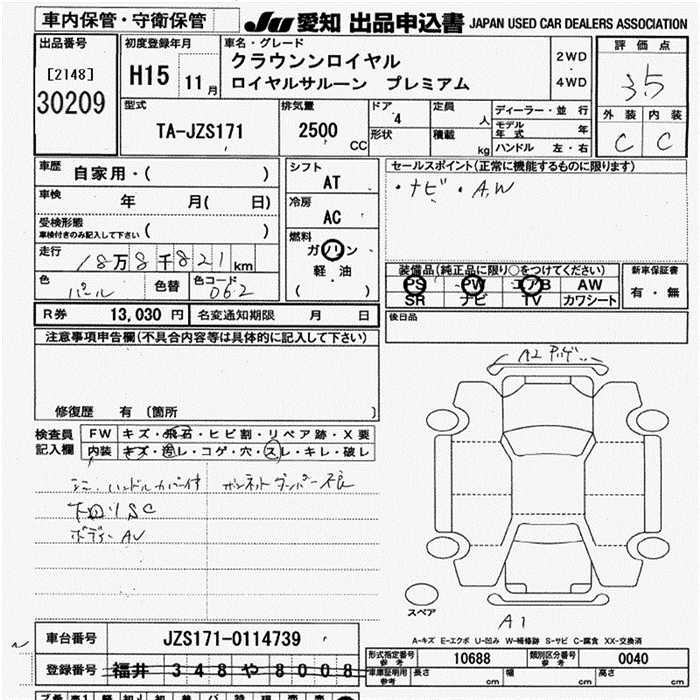 車内保管・守衛保管
JU 愛知 出品申込書 JAPAN USED CAR DEALERS ASSOCIATION
出品番号
[2148]
30209
初度登録年月
H15 11月
車名・グレード
クラウンンロイヤル
ロイヤルサルーン プレミアム
2WD
・
4WD
評価点
3.5
外装 内装
C C
型式
TA-JZS171
排気量
2500 CC
ドア 4
形状
定員 人
積載 kg
ディーラー・並行
モデル年式 年
ハンドル 左・右
車歴 自家用・( )
車検 年 月( 日)
受検形態
車検付きのみ記入して下さい ( )
走行 18万8千821km
色 パール 色替 色コード 062
シフト
AT
冷房
AC
燃料
ガソリン
軽・油
( )
セールスポイント(正常に機能するものに限ります)
・ナビ・A.W
装備品(純正品に限り○をつけてください)
PS PW エアB AW
SR ナビ TV カワシート
新車保証書
有・無
R券 13,030 円 名変通知期限 月 日
後日品
注意事項申告欄(不具合内容等は具体的に記入して下さい)
修復歴 有 〔箇所 〕
検査員
記入欄
FW キズ・飛石・ヒビ割・リペア跡・X要
内装 キズ・汚レ・コゲ・穴・スレ・キレ・破レ
ハンドルカバー付 ボンネットダンパー不良
下回りSC
ボディーAU
A2
スペア
A1
A-キズ E-エクボ U-凹み W-補修跡 S-サビ C-腐食 XX-交換済
車台番号 JZS171-0114739
登録番号 福井 348や8008
形式指定番号
参考 10688
類別区分番号
参考 0040
車庫証明用
参考 長さ cm 幅 cm 高さ cm